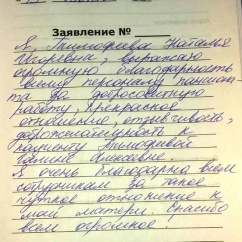 Заявление №
Я, Тимофеева Наталья
Игоревна, выражаю
огромную благодарность
всему персоналу пансиона
та за добросовестную
работу, прекрасное
отношение, отзывчивость,
доброжелательность к
пациенту Тимофеевой
Галине Алексеевне.
Я очень благодарна всем
сотрудникам за такое
чуткое отношение к
моей матери. Спасибо
вам огромное!